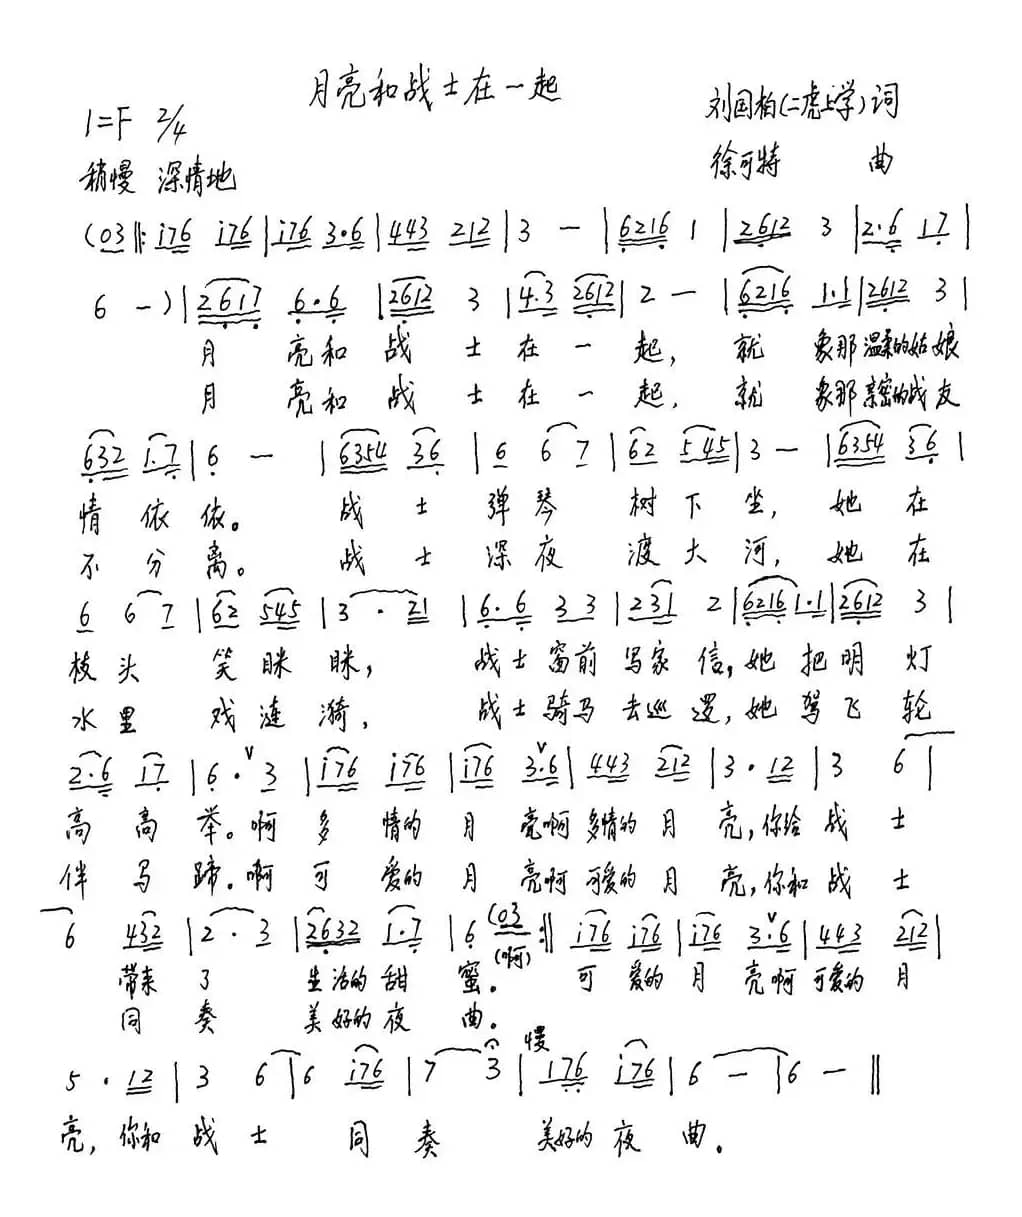 月亮和战士在一起
1=F 2/4
刘国柏(二虎上学)词
稍慢 深情地
徐可特 曲
(03‖:i76 i76|i76 3·6|443 212|3 —|6216 1|2612 3|2·6 17|
6 —)|2617 6·6|2612 3|4·3 2612|2 —|6216 1·1|2612 3|
月 亮和 战 士 在 一 起, 就 象那 温柔的姑娘
月 亮和 战 士 在 一 起, 就 象那 亲密的战友
632 1·7|6 —|6354 36|6 6 7|62 545|3 —|6354 36|
情 依 依。 战 士 弹 琴 树 下 坐, 她 在
不 分 离。 战 士 深 夜 渡 大 河, 她 在
6 6 7|62 545|3 · 21|6·6 33|231 2|6216 1·1|2612 3|
枝 头 笑 眯 眯, 战士 窗前 写家 信,她 把 明 灯
水 里 戏 涟 漪, 战士骑马 去巡 逻,她 驾 飞 轮
2·6 17|6·ⱽ3|i76 i76|i76 3ⱽ·6|443 212|3·12|3 6|
高 高 举。啊 多 情的 月 亮啊 多情的 月 亮,你给 战 士
伴 马 蹄。啊 可 爱的 月 亮啊 可爱的 月 亮,你和 战 士
6 432|2·3|2632 1·7|6 (03:‖i76 i76|i76 3ⱽ·6|443 212|
(啊)
带来 了 生活的 甜 蜜。 可 爱的 月 亮啊 可爱的 月
同 奏 美好的 夜 曲。
慢
5·12|3 6|6 i76|7 3|176 i76|6 —|6 —‖
亮,你和 战 士 同 奏 美好的 夜 曲。